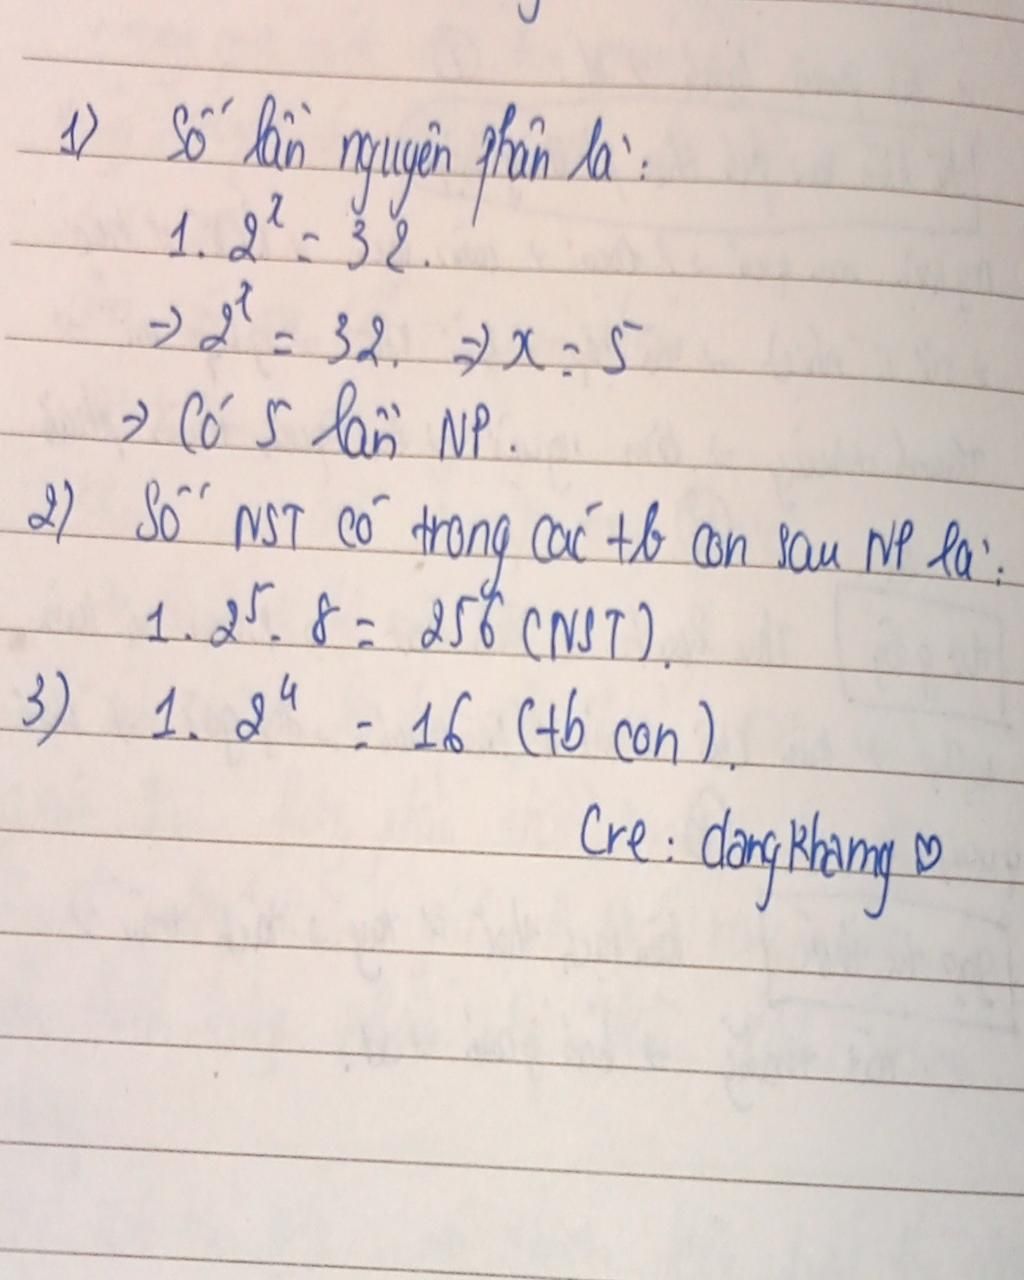 1) Số lần nguyên phân là:
1. 2ˣ = 32.
=> 2ˣ = 32. => x = 5
=> Có 5 lần NP.
2) Số NST có trong các tb con sau NP là:
1. 2⁵. 8 = 256 (NST).
3) 1. 2⁴ = 16 (tb con).
Cre: dangkhamg ♡